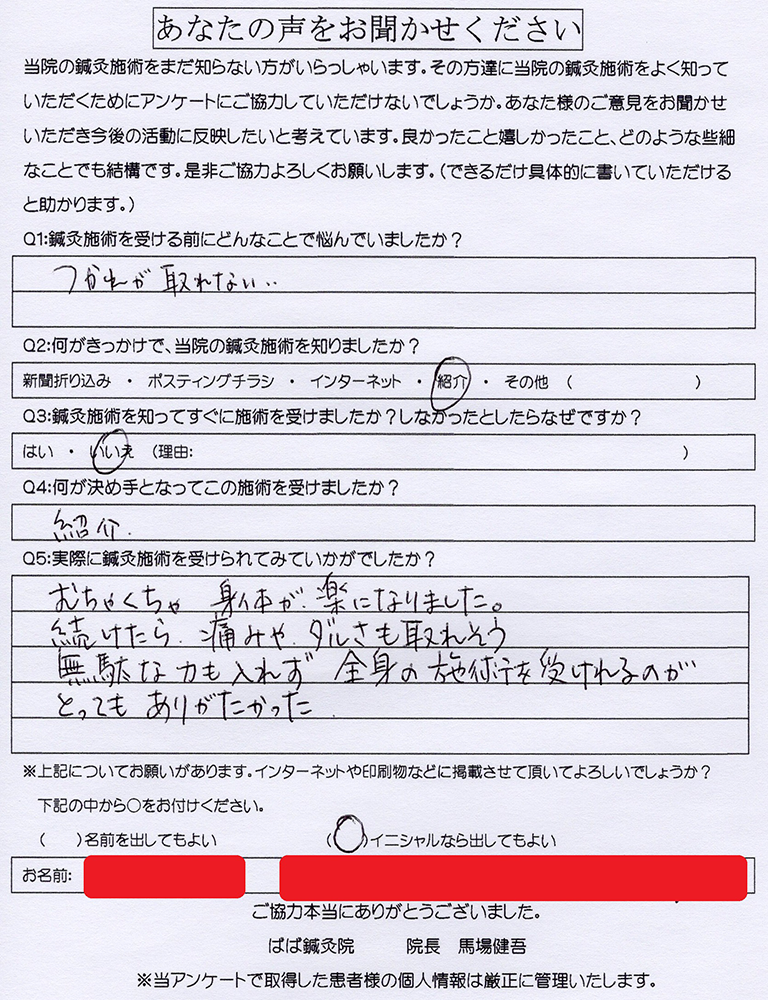 あなたの声をお聞かせください
当院の鍼灸施術をまだ知らない方がいらっしゃいます。その方達に当院の鍼灸施術をよく知って
いただくためにアンケートにご協力していただけないでしょうか。あなた様のご意見をお聞かせ
いただき今後の活動に反映したいと考えています。良かったこと嬉しかったこと、どのような些細
なことでも結構です。是非ご協力よろしくお願いします。（できるだけ具体的に書いていただける
と助かります。）
Q1:鍼灸施術を受ける前にどんなことで悩んでいましたか？
つかれが取れない..
Q2:何がきっかけで、当院の鍼灸施術を知りましたか？
新聞折り込み ・ ポスティングチラシ ・ インターネット ・ 紹介 ・ その他 （ ）
Q3:鍼灸施術を知ってすぐに施術を受けましたか？しなかったとしたらなぜですか？
はい ・ いいえ （理由: ）
Q4:何が決め手となってこの施術を受けましたか？
紹介.
Q5:実際に鍼灸施術を受けられてみていかがでしたか？
むちゃくちゃ 身体が 楽になりました。
続けたら. 痛みや. ダルさも取れそう
無駄な力も入れず 全身の施術を受けれるのが
とっても ありがたかった.
※上記についてお願いがあります。インターネットや印刷物などに掲載させて頂いてよろしいでしょうか？
下記の中から○をお付けください。
（ ）名前を出してもよい （○）イニシャルなら出してもよい
お名前:
ご協力本当にありがとうございました。
ばば鍼灸院 院長 馬場健吾
※当アンケートで取得した患者様の個人情報は厳正に管理いたします。